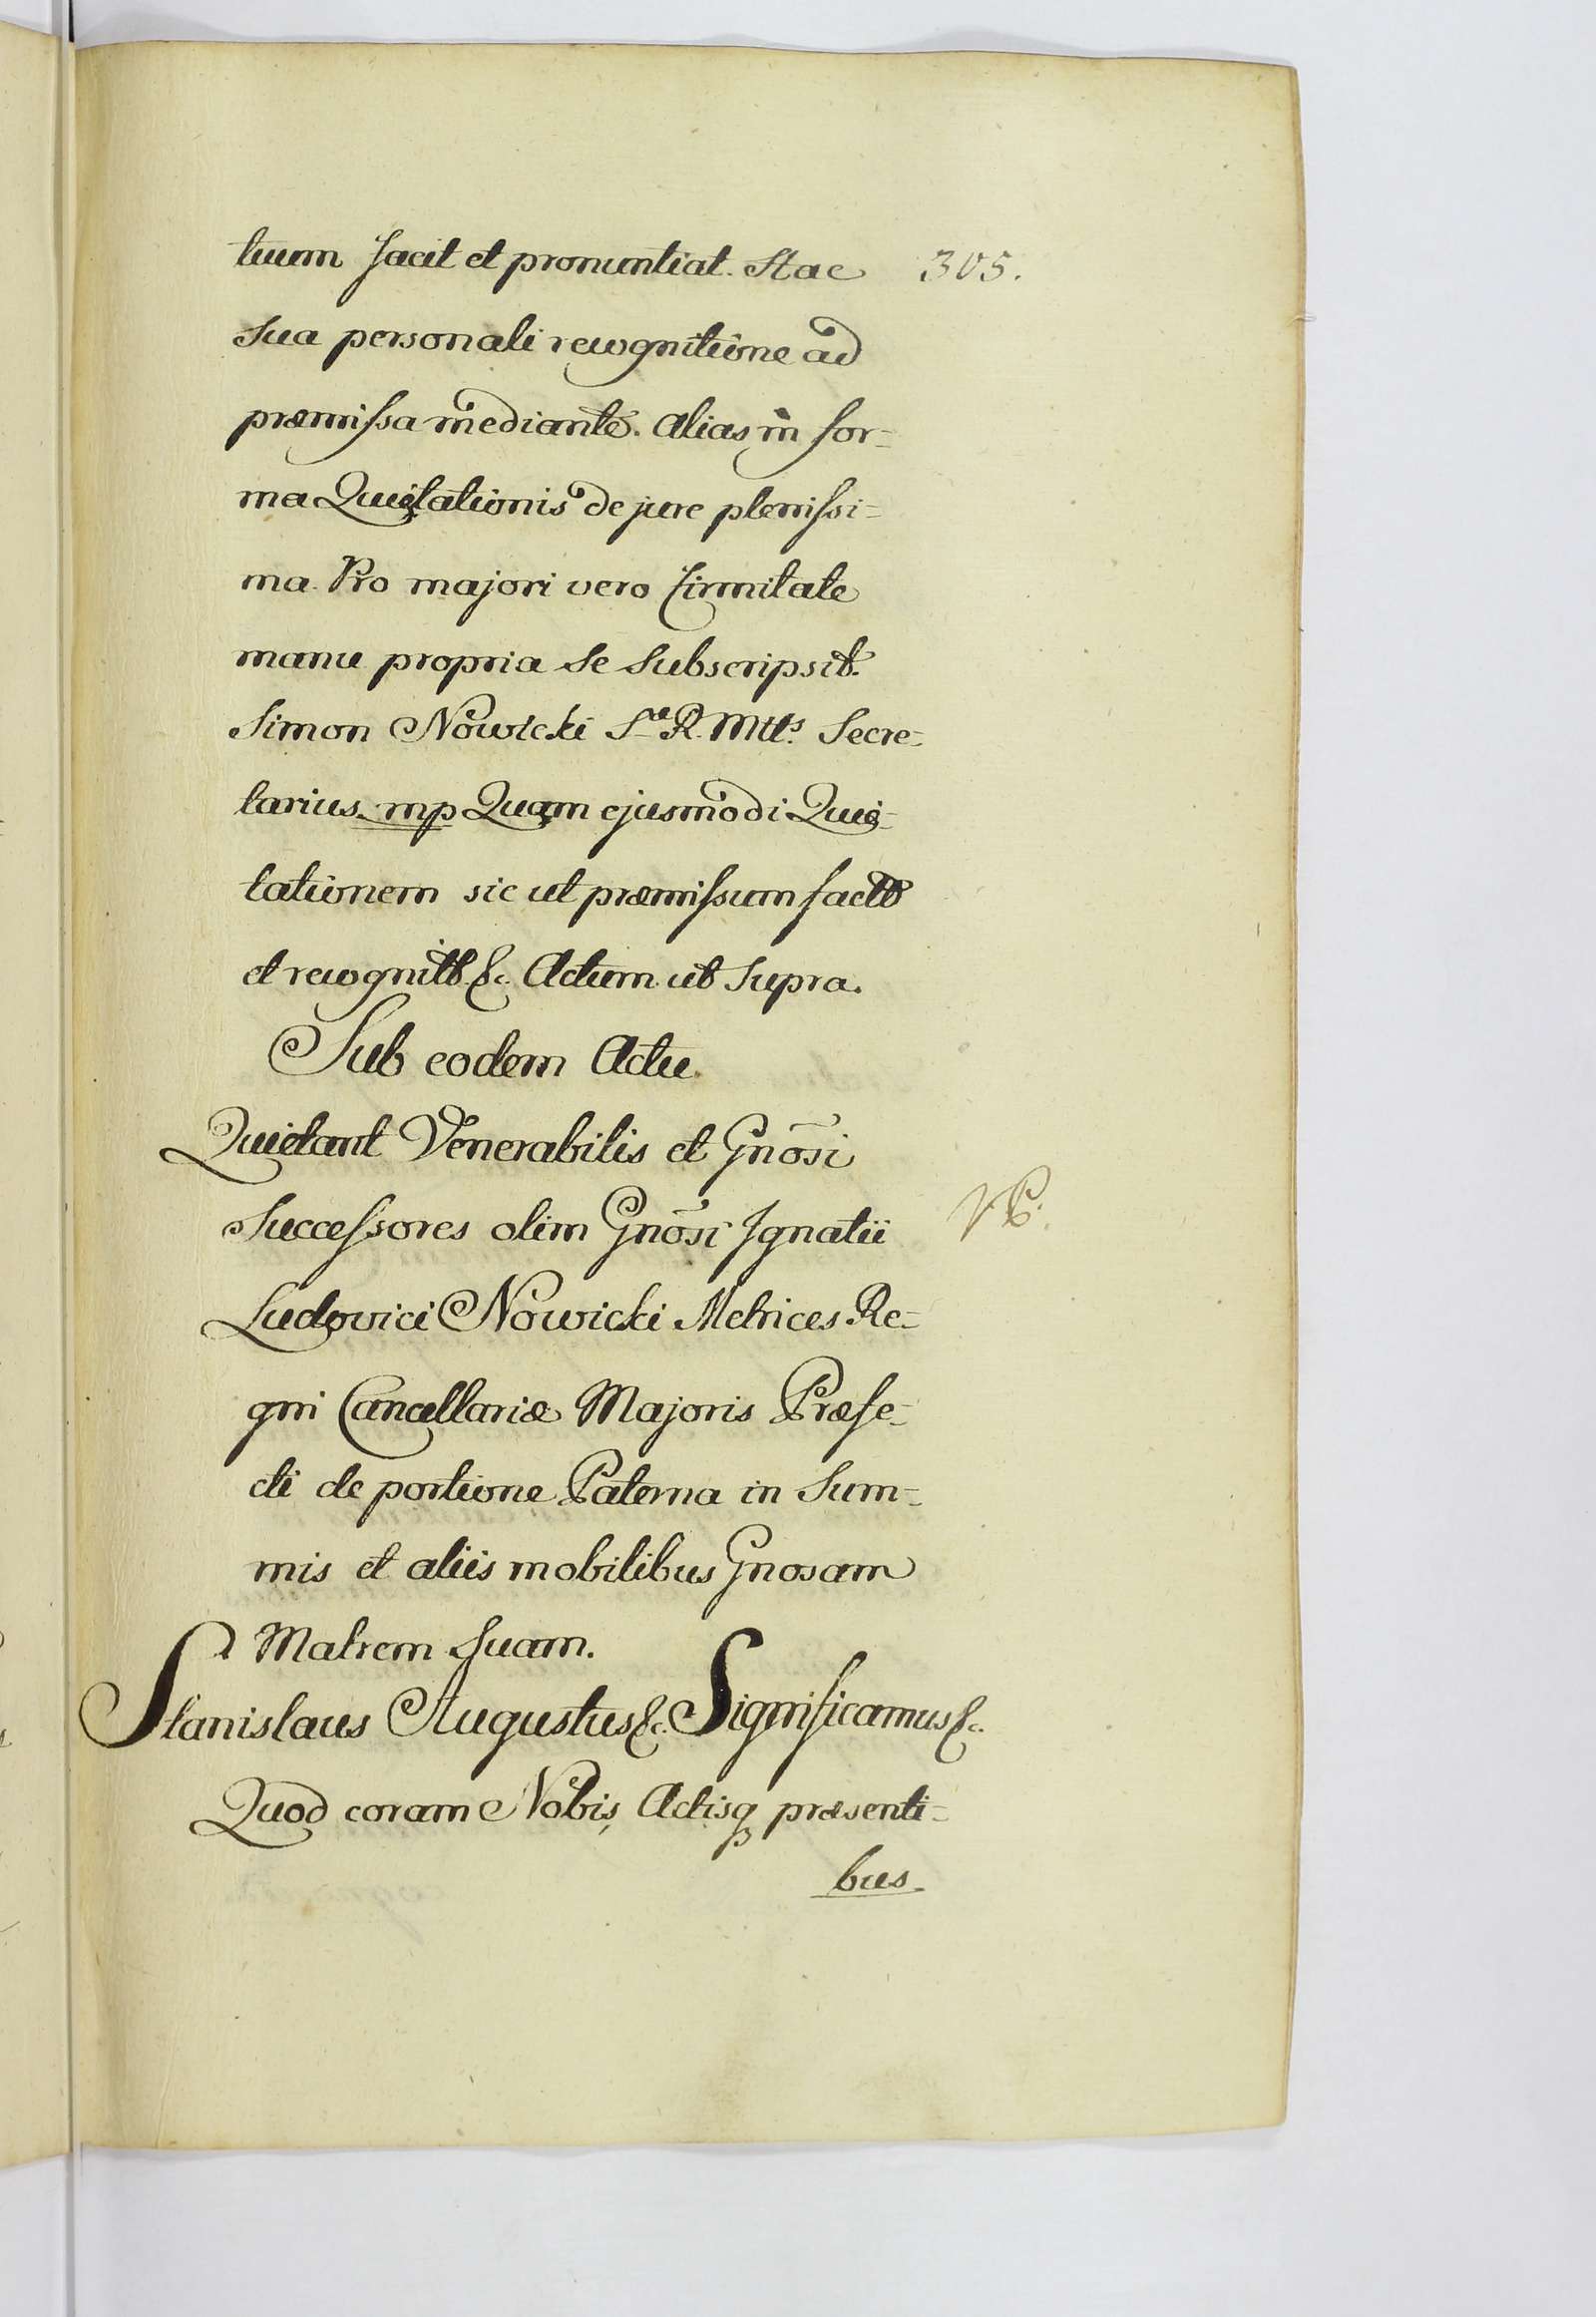 tuum facit et pronuntiat. Hac
305.
sua personali recognitione ad
præmissa mediante. Alias in for=
ma Quietationis de jure plenissi=
ma. Pro majori vero firmitate
manu propria se subscripsit.
Simon Nowicki S R. Mtts. Secre=
tarius mp Quam ejusmodi Quie=
tationem sic ut præmissum factt
et recognitt &c. Actum ut supra.
Sub eodem Actu.
Quietant Venerabilis et Gnosi
Successores olim Gnosi Ignatii
Ludovici Nowicki Metrices Re=
gni Cancellariæ Majoris Præfe=
cti de portione Paterna in Sum=
mis et aliis mobilibus Gnosam
Matrem suam.
Stanislaus Augustus &c. Significamus &c.
Quod coram Nobis, Actisq præsenti=
bus